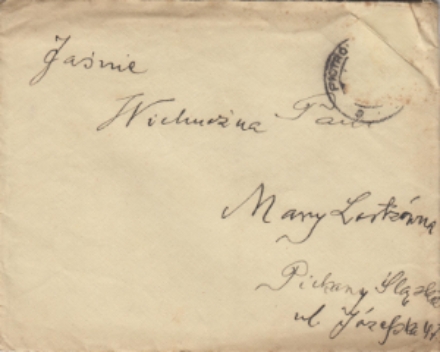 Jaśnie
PIOTRO
Wielmożna Pani
Mary Lestrówna
Piekary Śląskie
ul Józefska 47